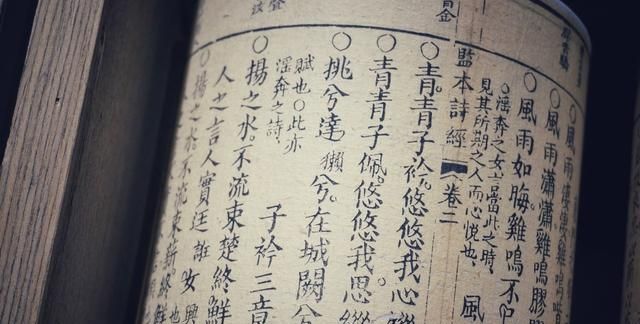 風雨淒淒雞鳴
○風雨瀟瀟雞鳴膠
○風雨如晦雞鳴不
○淫奔之女言當此之時
見其所期之人而心悅也 風
監本詩經 卷二
○青青子衿。悠悠我心
○青青子佩。悠悠我思。
○挑兮達獺兮。在城闕兮
賦也○此亦
淫奔之詩
子衿三章
○揚之水。不流束楚終鮮
人之言人實迋誑女 興
○揚之水不流束薪。終鮮